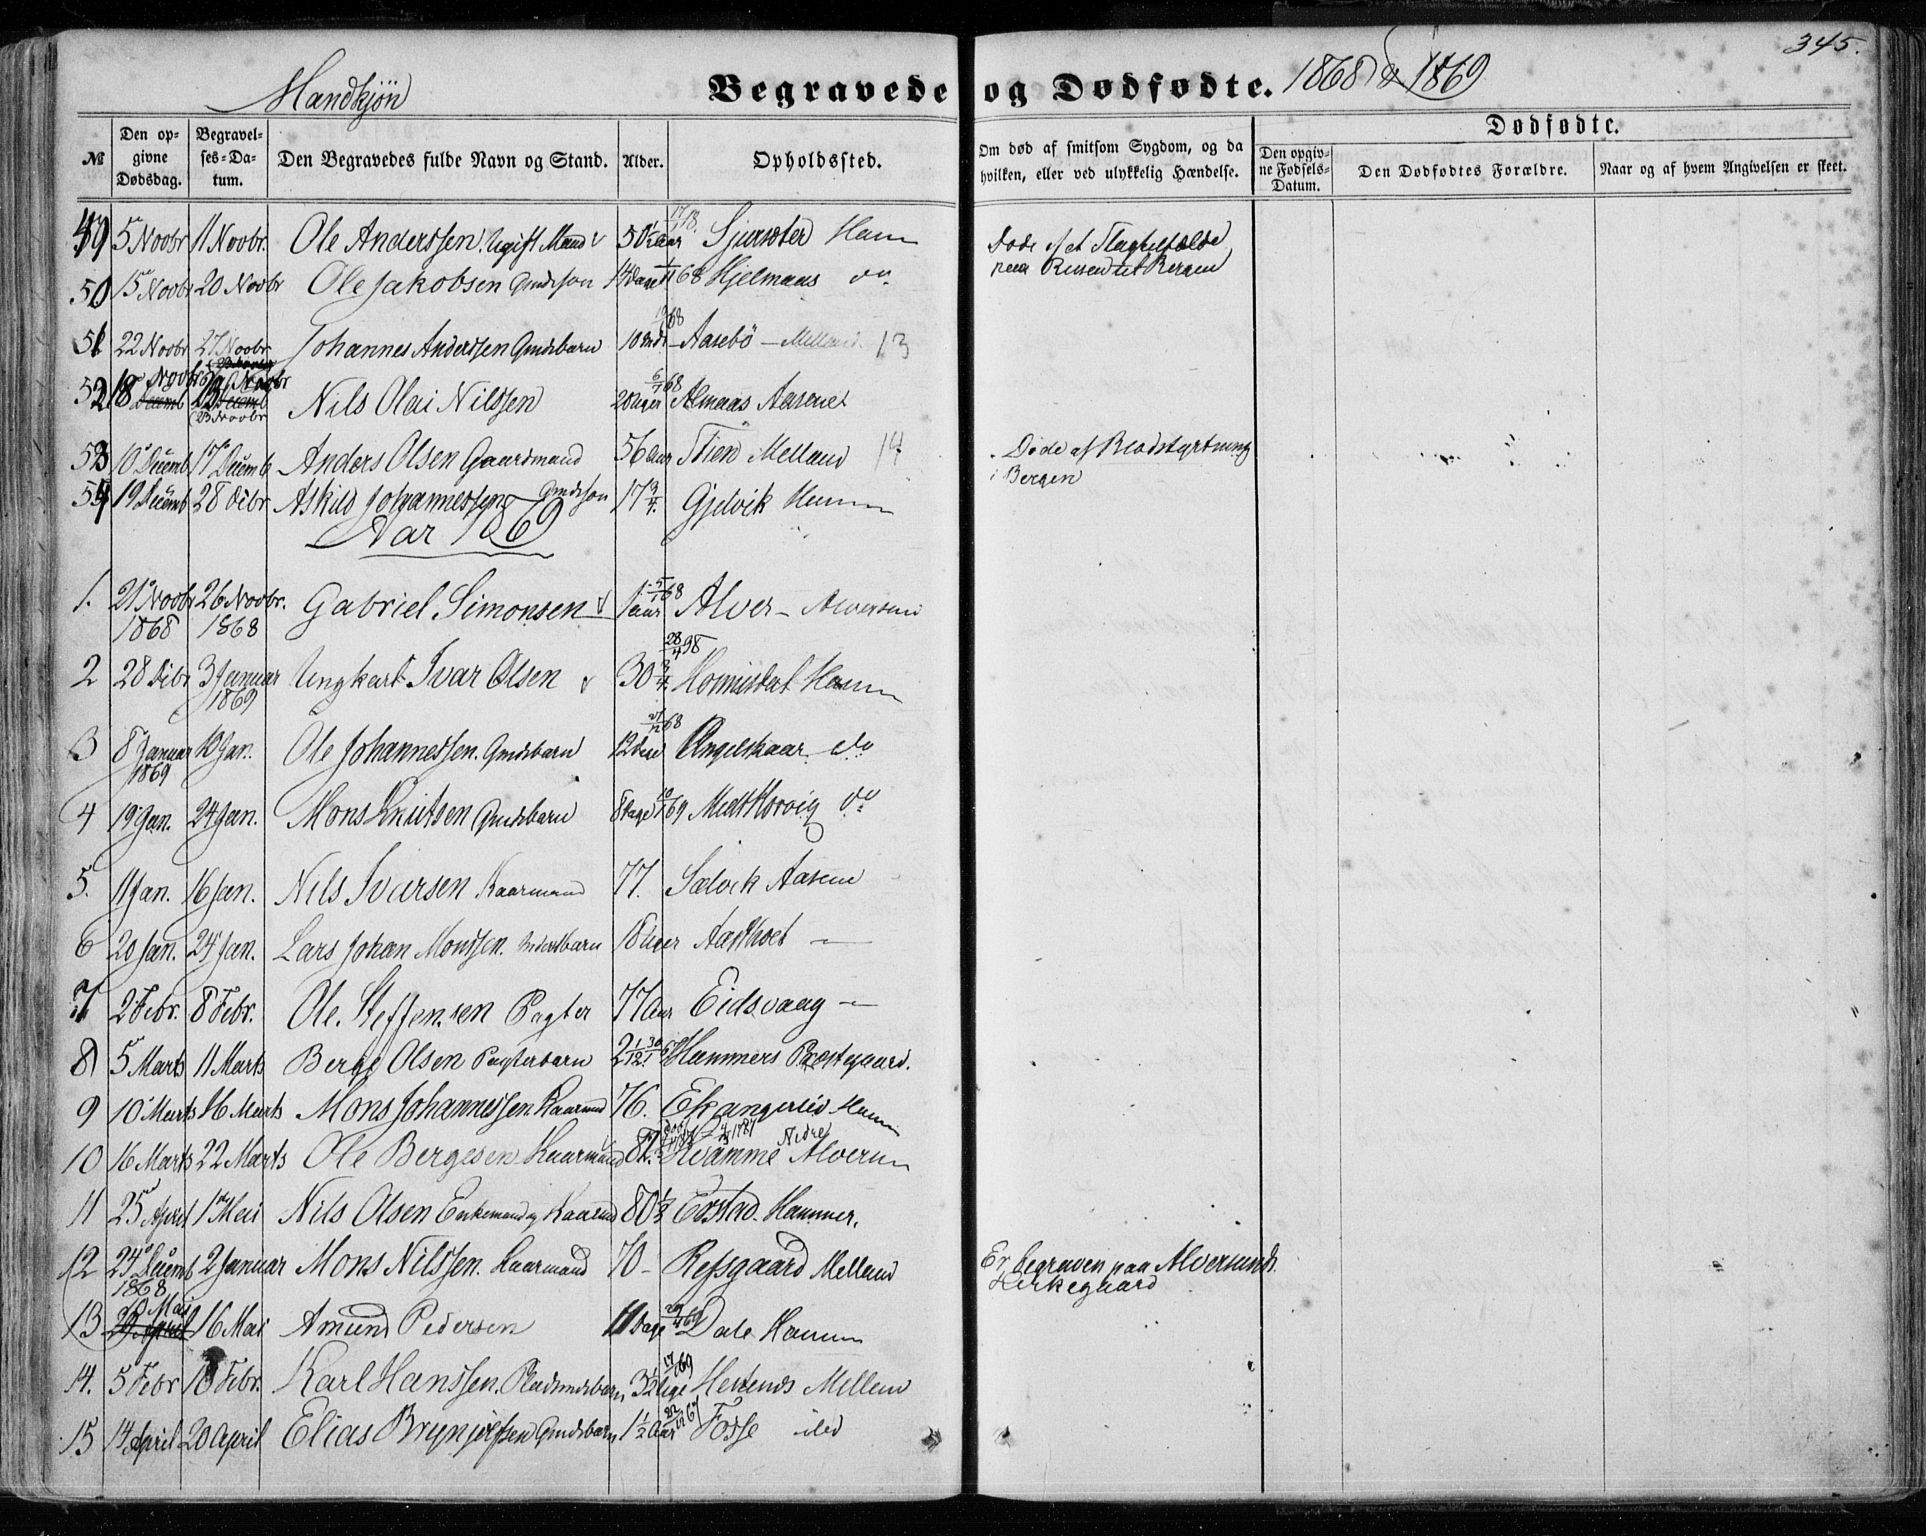 345.
Mandkjön
Begravede og Dødfødte. 1868 & 1869
№
Den opgivne Dødsdag.
Begravelses-Datum.
Den Begravedes fulde Navn og Stand.
Alder.
Opholdssted.
Om død af smitsom Sygdom, og da hvilken, eller ved ulykkelig Hændelse.
Dødfødte.
Den opgivne Fødsels-Datum.
Den Dødfødtes Forældre.
Naar og af hvem Angivelsen er skeet.
49 5 Novbr 11 Novbr. Ole Anderssen Ugift Mand 50½ Aar Ham
Døde af et
paa Reisen til Bergen
50 15 Novbr 20 Novbr Ole Jakobsen Gmdsson 14 Dage 68 Hjelmaas do
51 22 Novbr 27 Novbr Johannes Anderssen Gmdsbarn 68 Aasebö Melland 13
52 18 Novbr Nils Olai Nilssen 20 Uger 6/7 68 Almaas Aasene
23 Novbr
53 10 Decemb 17 Decemb Anders Olsen Gaardmand 56 Aar Melland 14
Døde af Blodstyrtning
i Bergen
54 19 Decemb 28 Dcbr Askild Johannessen Gmdsson 17 3/4 Gjelvik Ham
Aar 1869
1. 21 Novbr 26 Novbr. Gabriel Simonsen 1 Aar 68 Alver - Alversund
1868 1868
2 28 Dcbr 3 Januar Ungkarl Ivar Olsen 30 3/4 28/4 Ham
1869
3 8 Januar Jan. Ole Johannessen. Gmdsbarn 12 Dage 27/12 68 Angelskaar do
1869
4 19 Jan. 24 Jan. Mons Knutsen Gmdsbarn 8 Dage 69 Midthorvig do
5. 11 Jan. 16 Jan. Nils Ivarsen Kaarmand 77. Sælvik Aasene
6 20 Jan. 24 Jan. Lars Johan Monssen. 18 Uger -
7 2 Febr. 8 Febr. Ole Steffensen Pagter 77 Aar Eidsvaag -
8 5 Marts 11 Marts Berge Olsen Pagterbarn 2 1/12 Hammers Præstegaard.
9 10 Marts 16 Marts Mons Johannessen Kaarmd 76. Ekangerlid Ham
10 16 Marts 22 Marts Ole Bergesen Kaarmand 82. 1787 Nedre Hvamme Alversun
11 25 April 1 Mai Nils Olsen Enkemand og Kaarmd 80½ Erstad Hammer.
12 24 Decemb 2 Januar Mons Nilssen. Kaarmand 70 - Refsgaard Melland
1868
Er begraven paa Alversunds
Kirkegaard
13 10 Mai 16 Mai Amund Pedersen 11 Dage 29/4 69 Dale Ham
29 April
14. 5 Febr 18 Febr. Karl Hanssen. 3½ Uge 69 Melland
15 14 April 20 April Elias Brynjelfsen Gmdsbarn 1½ Aar Fosse